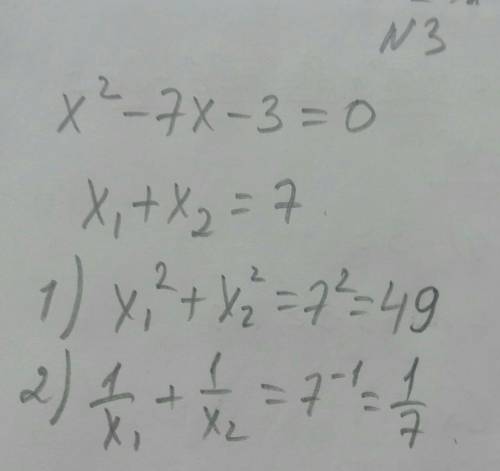 N3
x² - 7x - 3 = 0
x₁ + x₂ = 7
1) x₁² + x₂² = 7² = 49
2) 1/x₁ + 1/x₂ = 7⁻¹ = 1/7